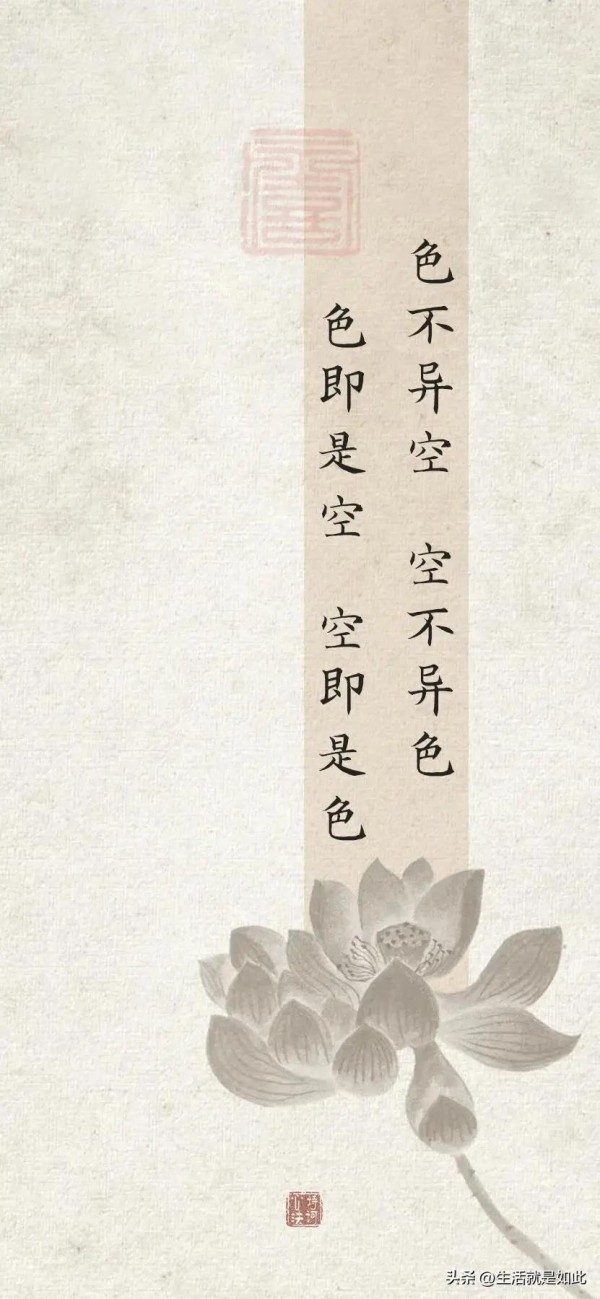 色不异空 空不异色
色即是空 空即是色
头条 @生活就是如此